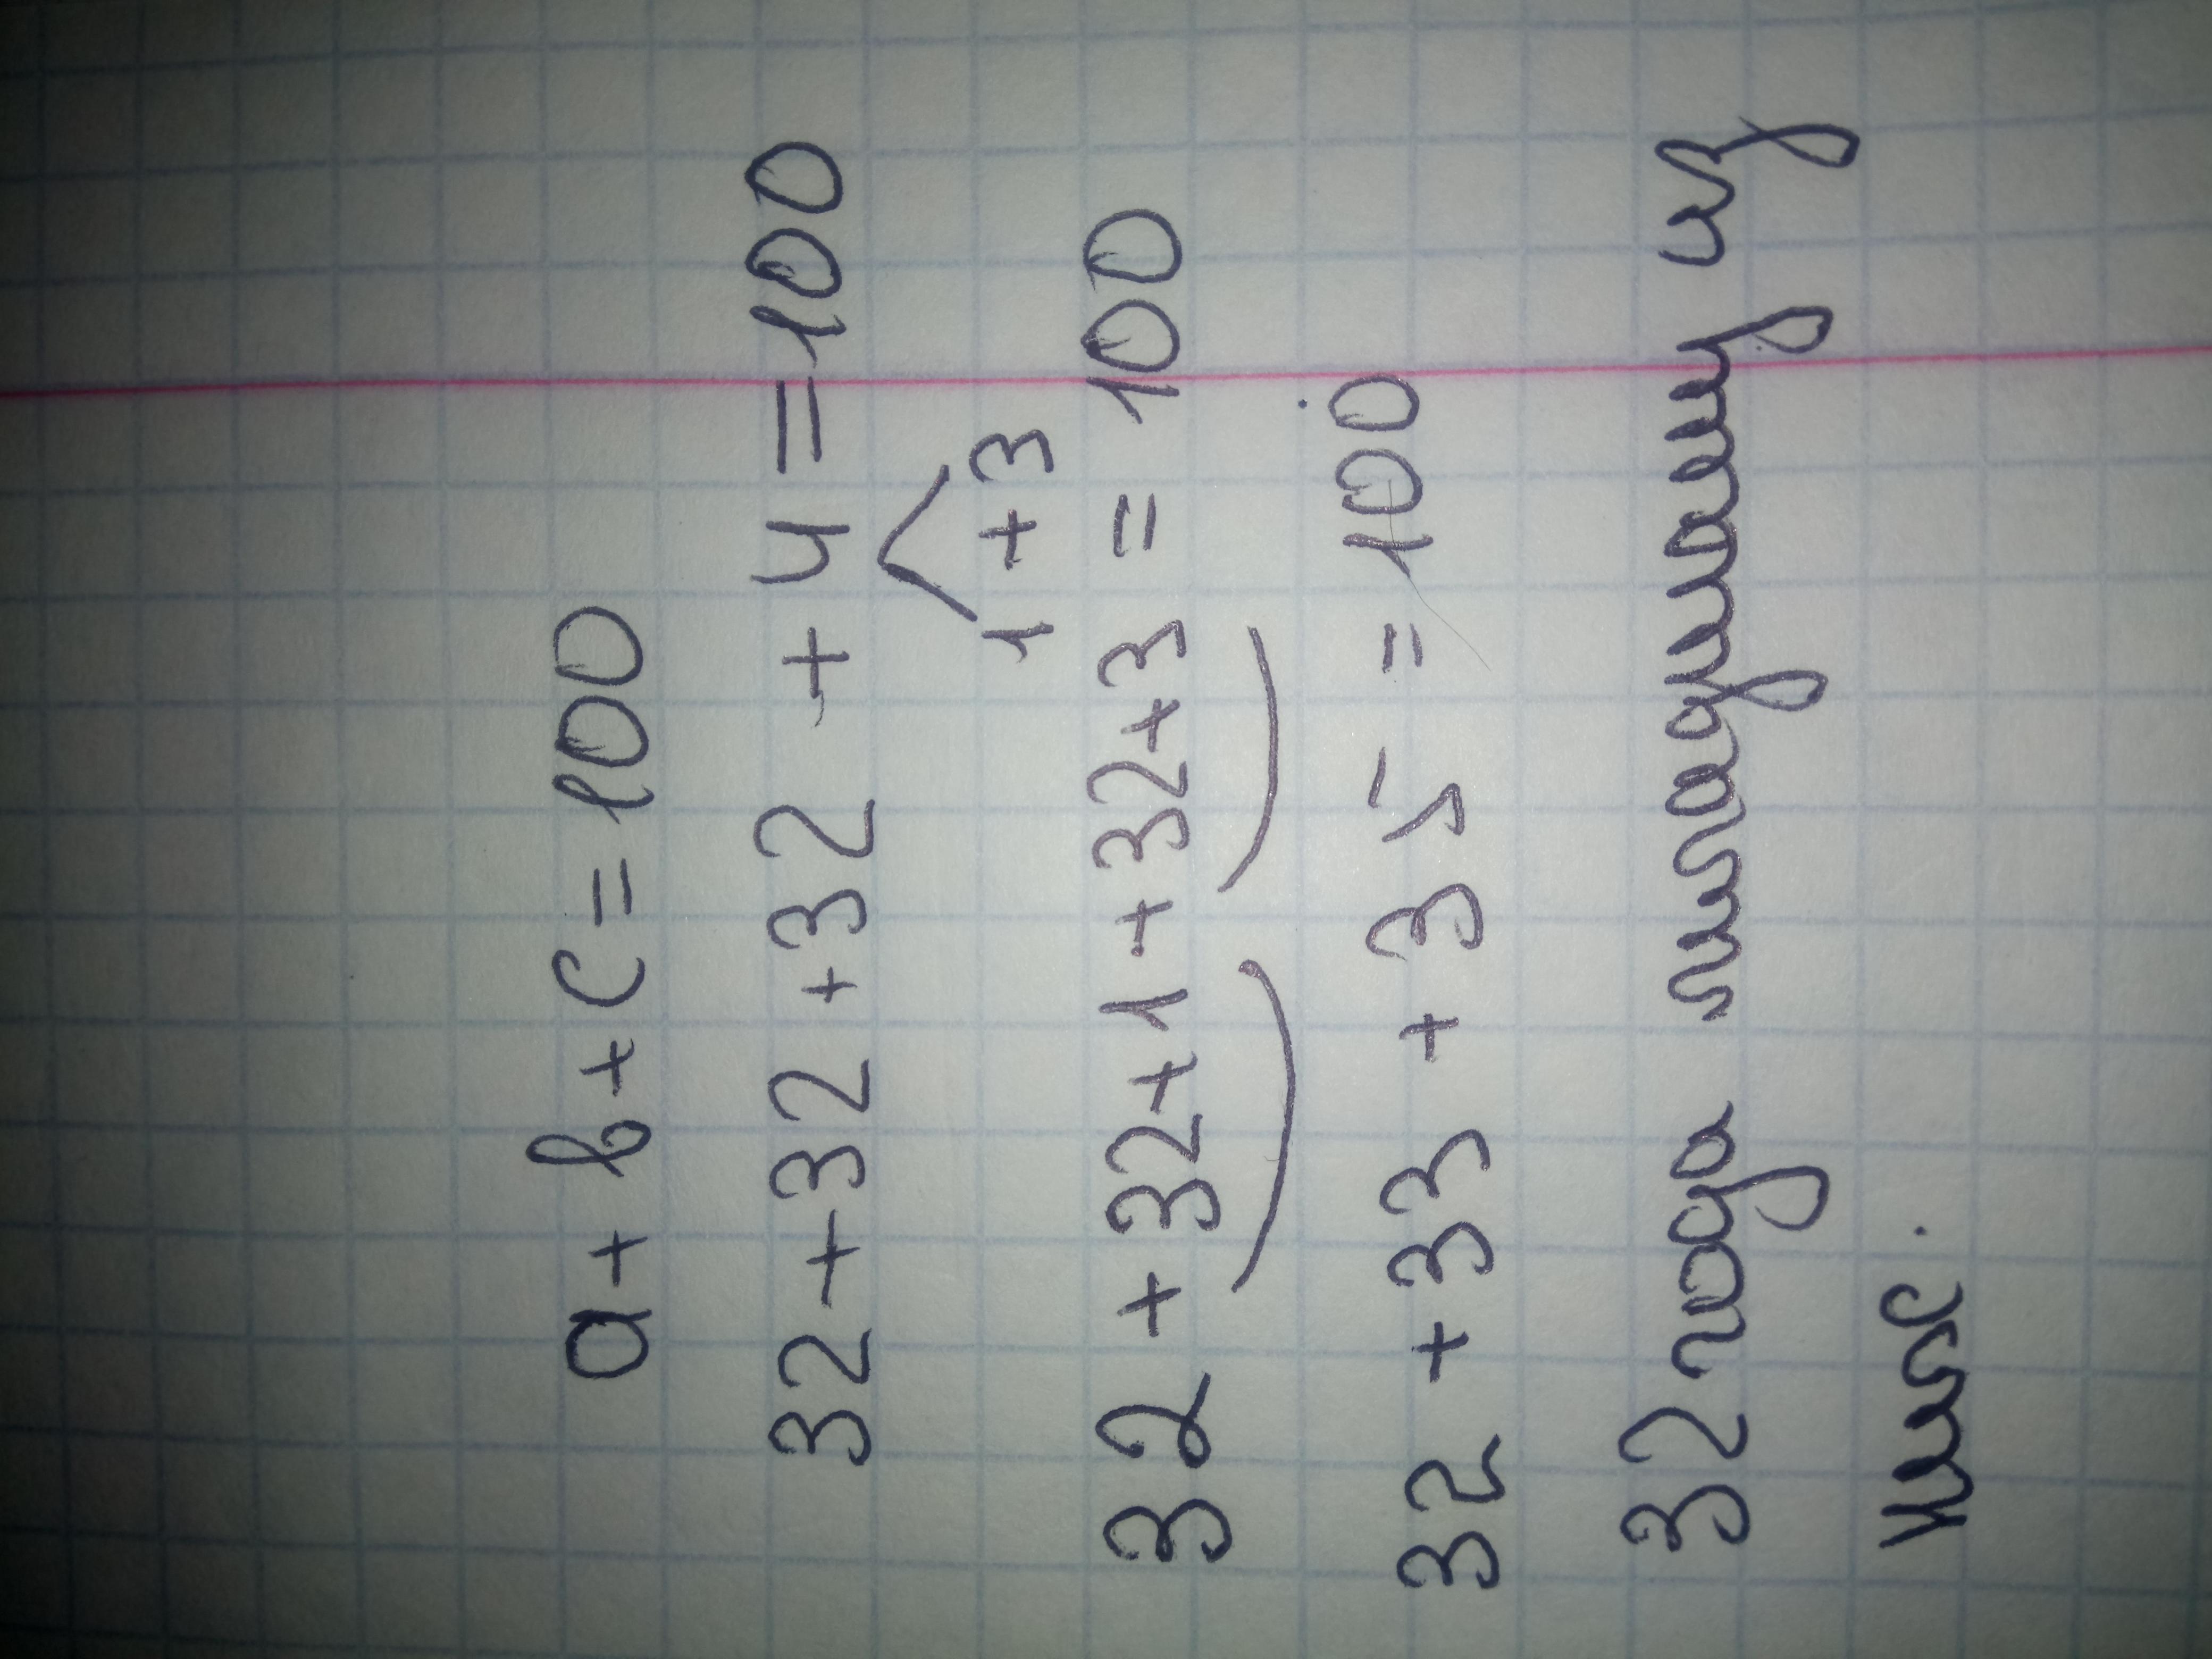 a + b + c = 100
32 + 32 + 32 + 4 = 100
1 + 3
32 + 32 + 1 + 32 + 3 = 100
32 + 33 + 35 = 100
32 года младшему из
них.